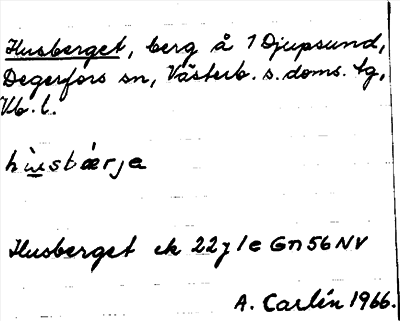 Husberget, berg å 1 Djupsund,
Degerfors sn, Västerb. s. doms. tg,
Vb. l.
hùsbǽrja
Husberget ek 22 J 1e Gn 56 NV
A. Carlín 1966.